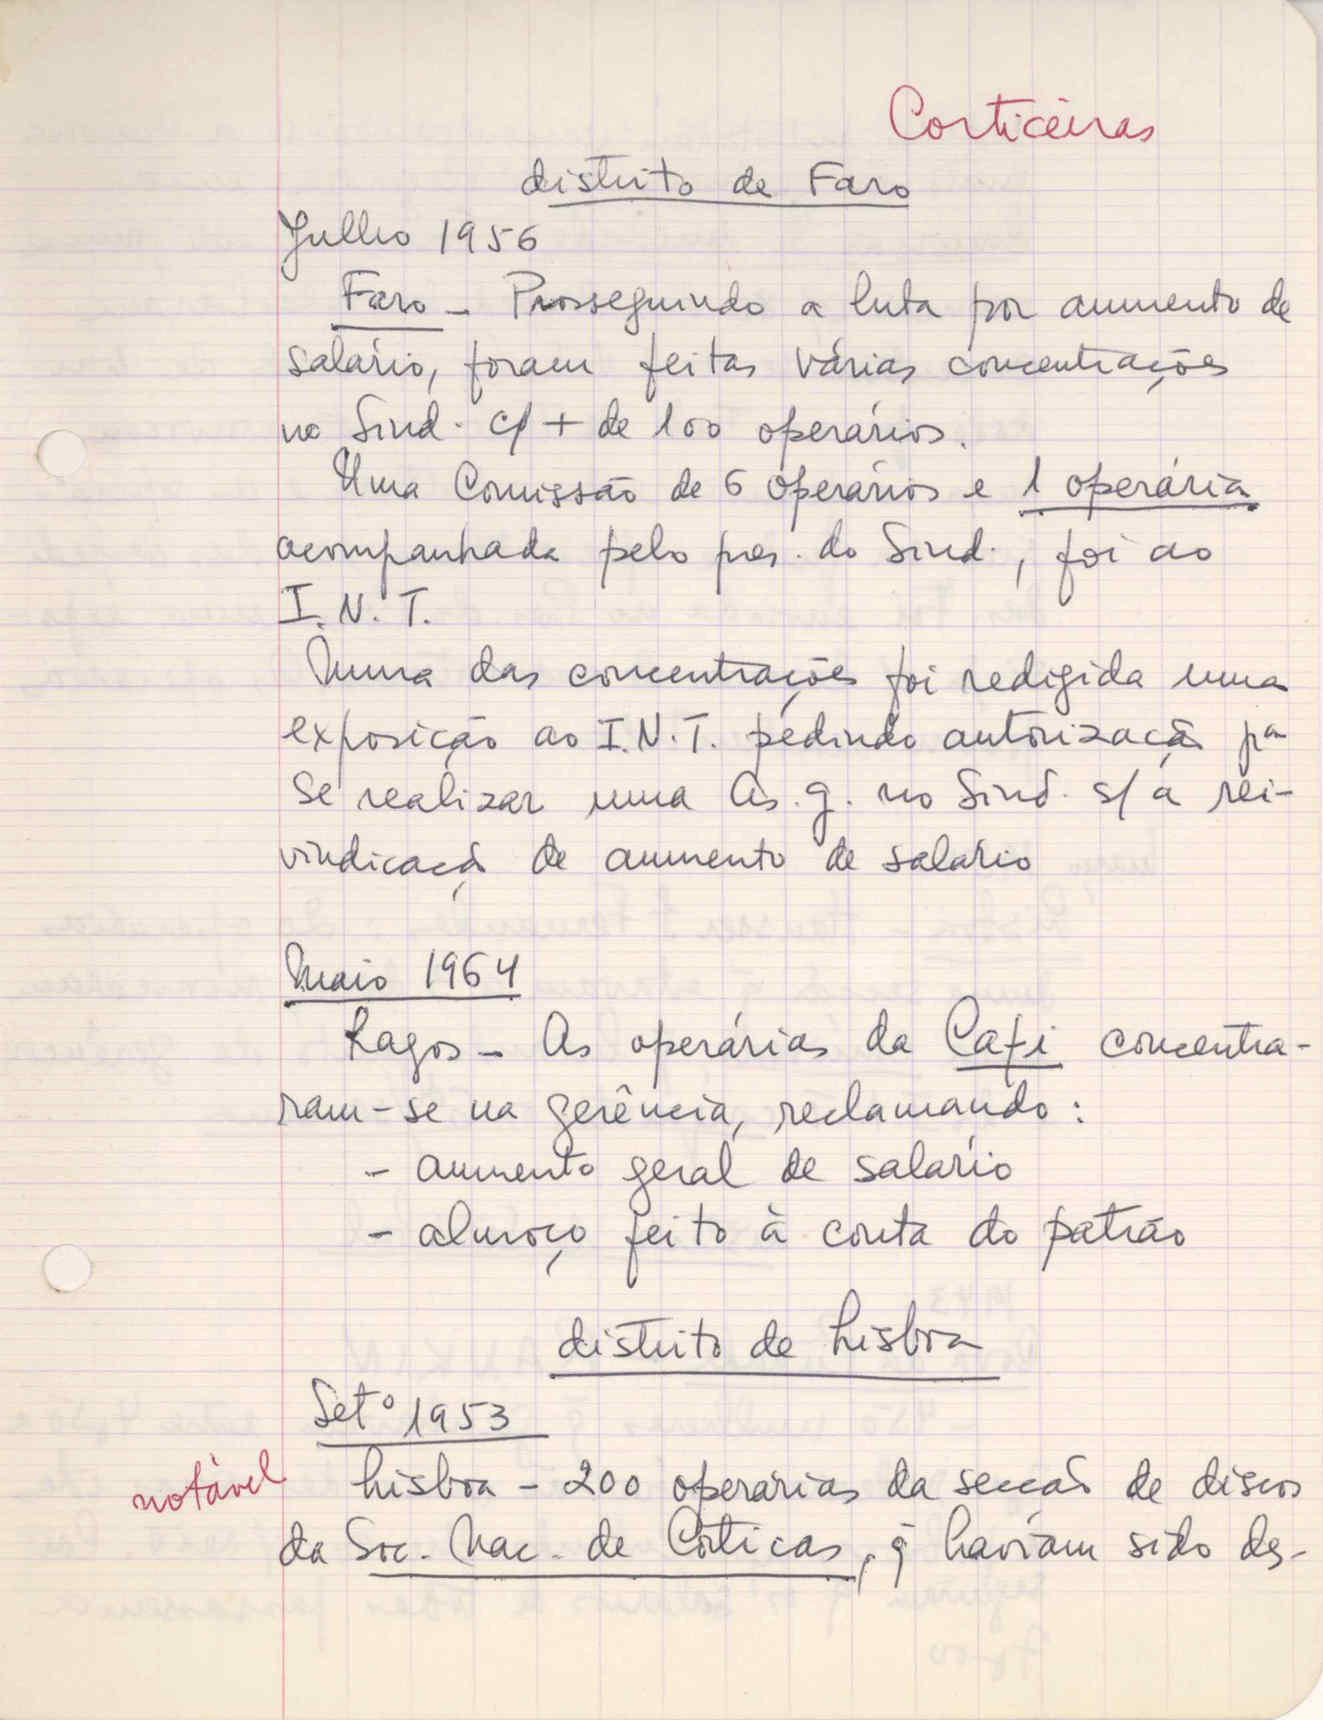 Corticeiras
distrito de Faro
Julho 1956
Faro - Prosseguindo a luta por aumento de
salário, foram feitas várias concentrações
no Sind. c/ + de 100 operários.
Uma Comissão de 6 operários e 1 operária
acompanhada pelo pres. do Sind., foi ao
I.N.T.
Numa das concentrações foi redigida uma
exposição ao I.N.T. pedindo autorizaçã pª
se realizar uma As. g. no Sind. s/ a rei-
vindicaçã de aumento de salário
Maio 1964
Lagos - As operárias da Cafi concentra-
ram-se na gerência, reclamando:
- aumento geral de salário
- almoço feito à conta do patrão
distrito de Lisboa
Setº 1953
notável
Lisboa - 200 operárias da secção de discos
da Soc. Nac. de Corticas, q̃ haviam sido des-